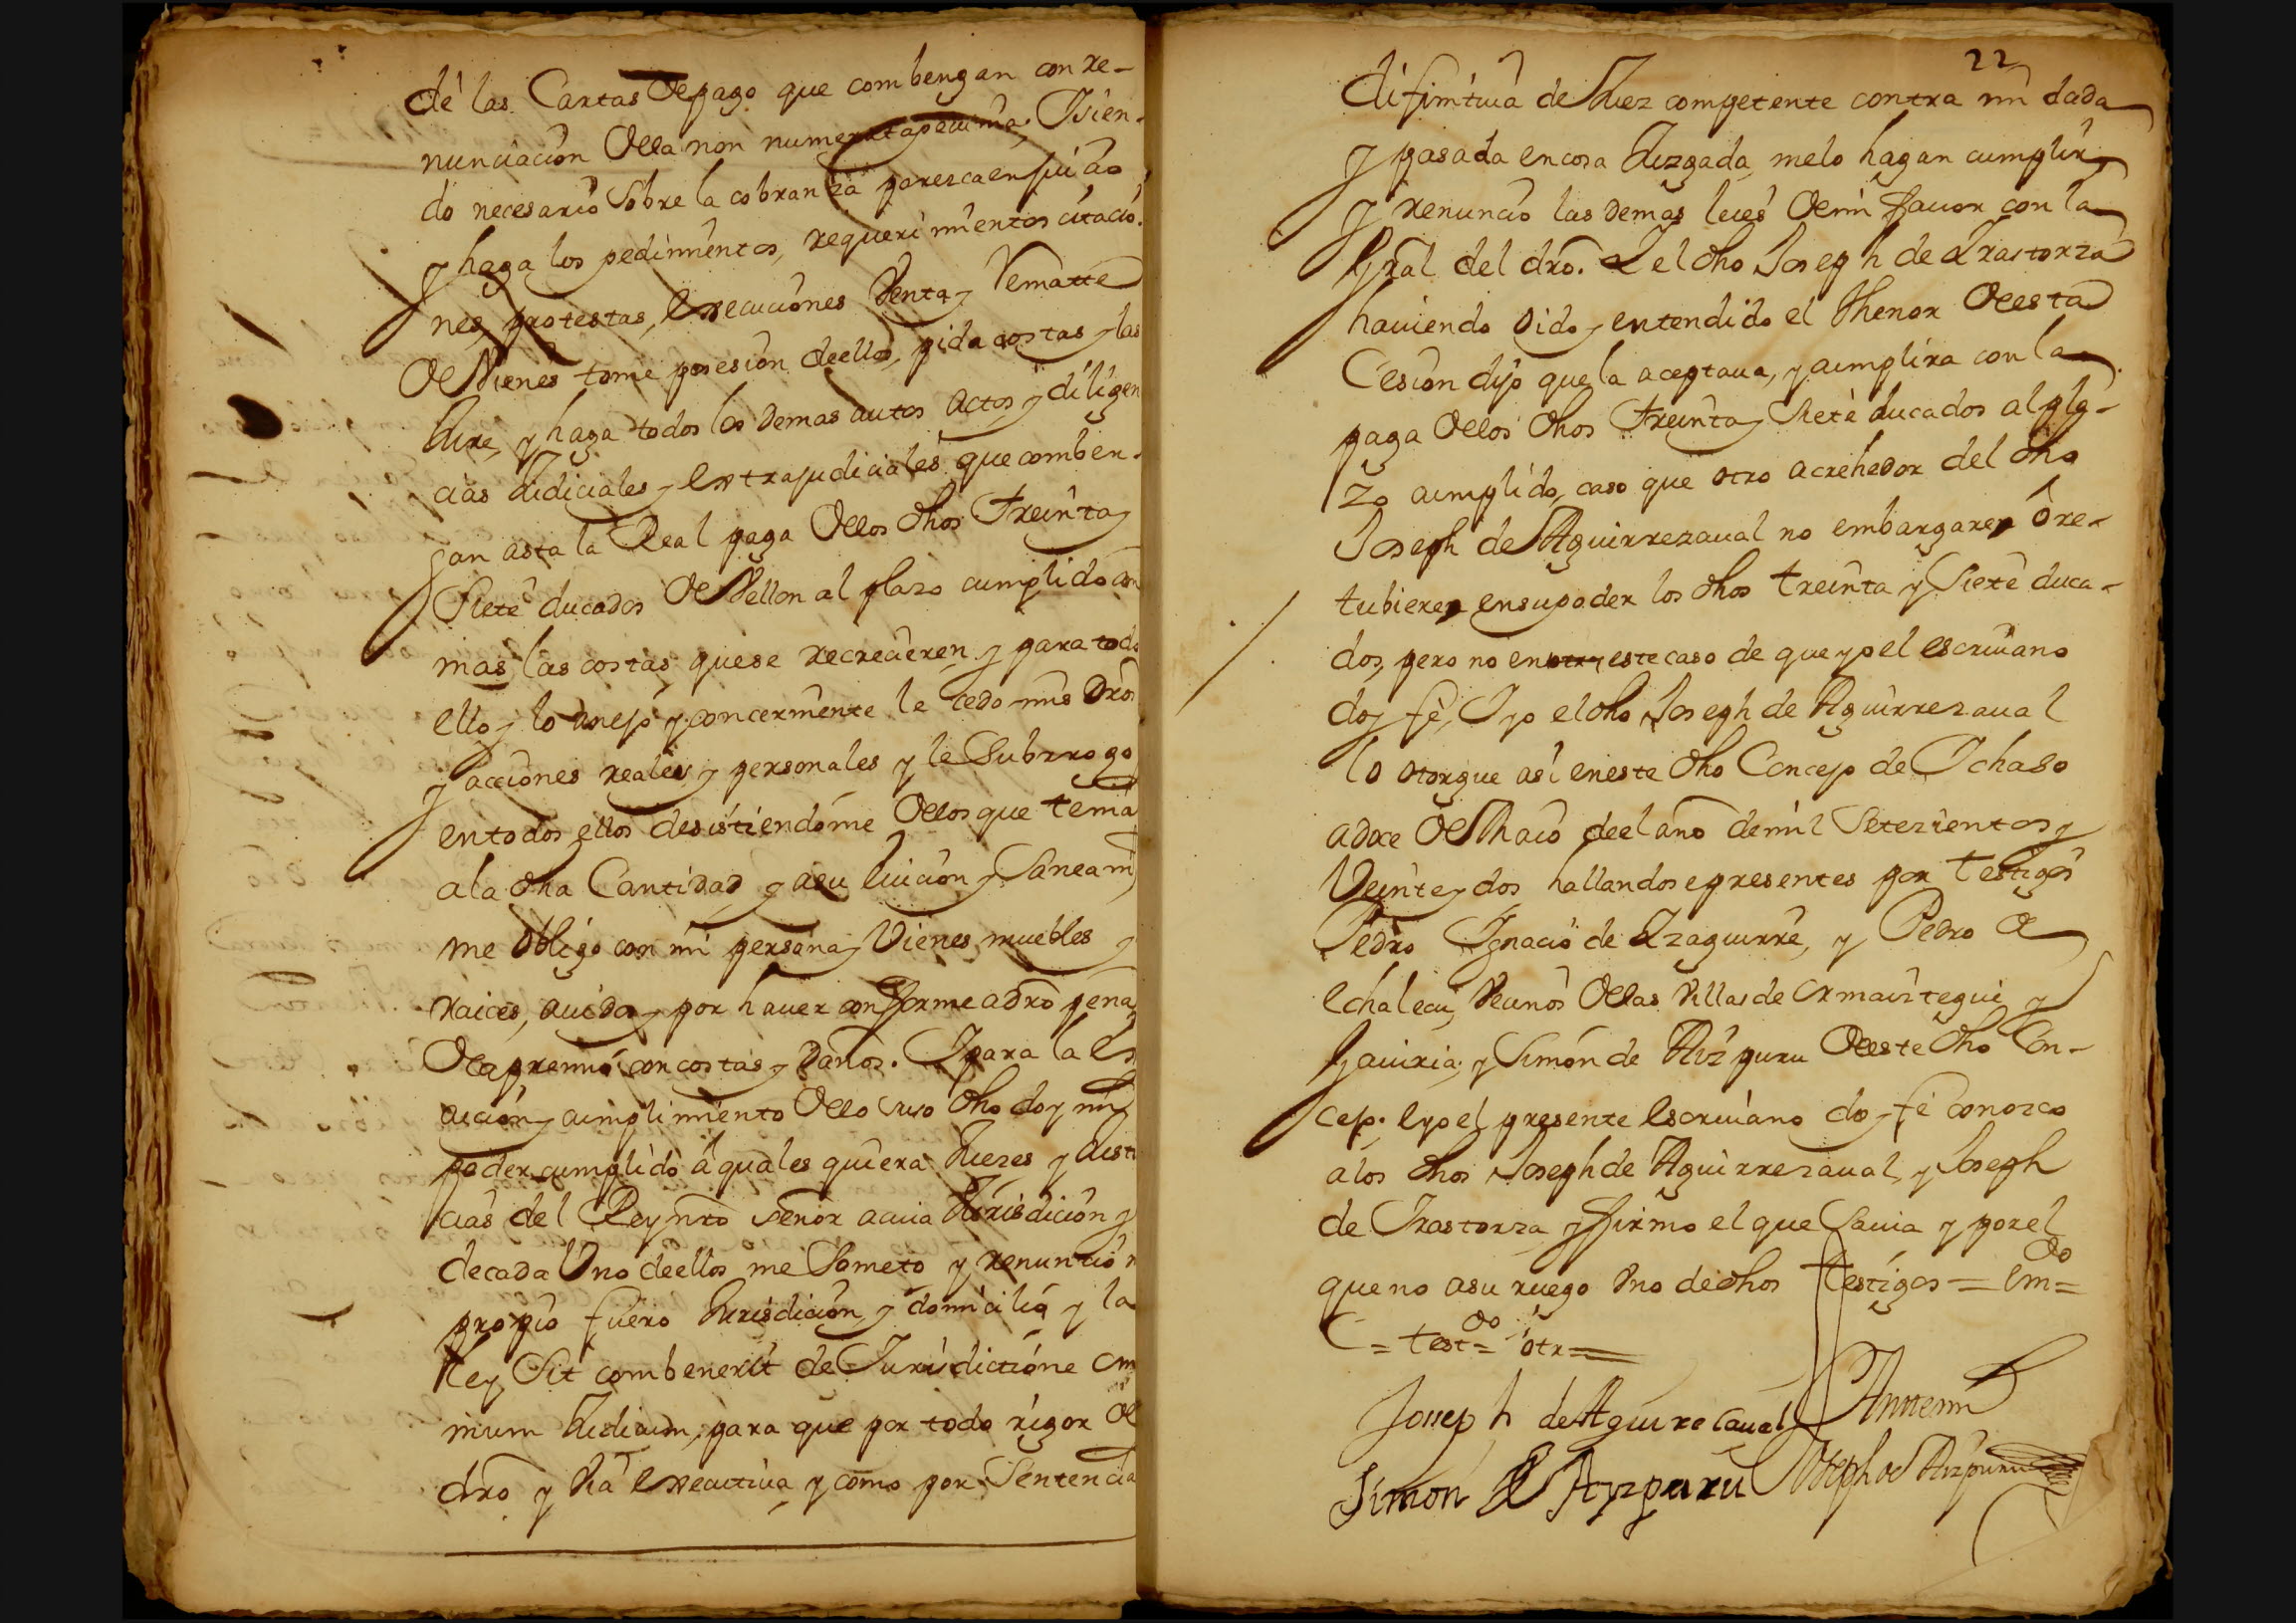 dé las Cartas de pago que combengan con re-
nunciacion della non numerata pecunia, Isien-
do necesario sobre la cobranza paresca en juiçio
y haga los pedimientos, requerimientos citacio-
nes, protestas, execuciones Venta y Rematte
de Vienes tome posesion deellos, pida costas y las
Jure, y haga todos los demas autos actos y diligen
cias Judiciales y extrajudiciales que comben-
gan asta la Real paga dellos dhos Treinta y
Siete ducados de Vellon al plazo cumplido con
mas las costas que se recrecieren y para todo
ello y lo anejo y concerniente le cedo mis dros
y acciones reales y personales y le Subrrogo
entodos ellos desistiendome dellos que tenia
ala dha Cantidad y aeu Eviccion y Saneamto
me obligo con mi persona y Vienes muebles y
raices, auidos y por hauer confforme adro pena
de apremio con costas y daños. Ipara la Ex
accion y cumplimiento dello suso dho doy mi
poder cumplido á quales quiera Juezes y Justi
cias del Rey nro señor acuia Jurisdicion y
decada Uno deellos me Someto y renuncio m
propio fuero Jurisdicion y domicilio y la
Ley Sit combenerit de Jurisdictione om
nium Judicum, para que por todo rigor de
dro y Via executiua y como por Sentencia
22
difinitiua de Juez competente contra mi dada
y pasada encosa Juzgada, melo hagan cumplir
y renuncio las demas leies demi ffauor con la
Gral del dro. I el dho Joseph de Irastorza
hauiendo oido y entendido el thenor desta
Cesion dijo que la aceptaua, y cumplira con la
paga dellos dhos Treinta y Siete ducados al pla-
zo cumplido, caso que otro acrehedor del dho
Joseph de Aguirrezaual no embargaren ôre-
tubieren ensupoder los dhos treinta y Siete duca-
dos, pero no en otr este caso de que yo el escriuano
doy fe, I yo el dho Joseph de Aguirrezaual
lo otorgue asi eneste dho Concejo de Ichaso
adoce de Maio deel año demil Setezientos y
Veinte y dos hallandose presentes por testigos
Pedro Ignacio de Izaguirre, y Pedro de
Echalecu, Vecinos dellas Villas de Ormaiztegui y
Gauiria, y Simon de Aizpuru deeste dho Con-
cejo. Eyo el presente Escriuano doy fe conozco
alos dhos Joseph de Aguirrezaual, y Joseph
de Irastorza y ffirmo el que Sauia y por el
que no asu ruego Uno de dhos testigos = Emdo=
C = testdo = otr =
Joseph de Aguirreçaual Antemi
Simon de Ayzpuru Joseph de Aizpuru